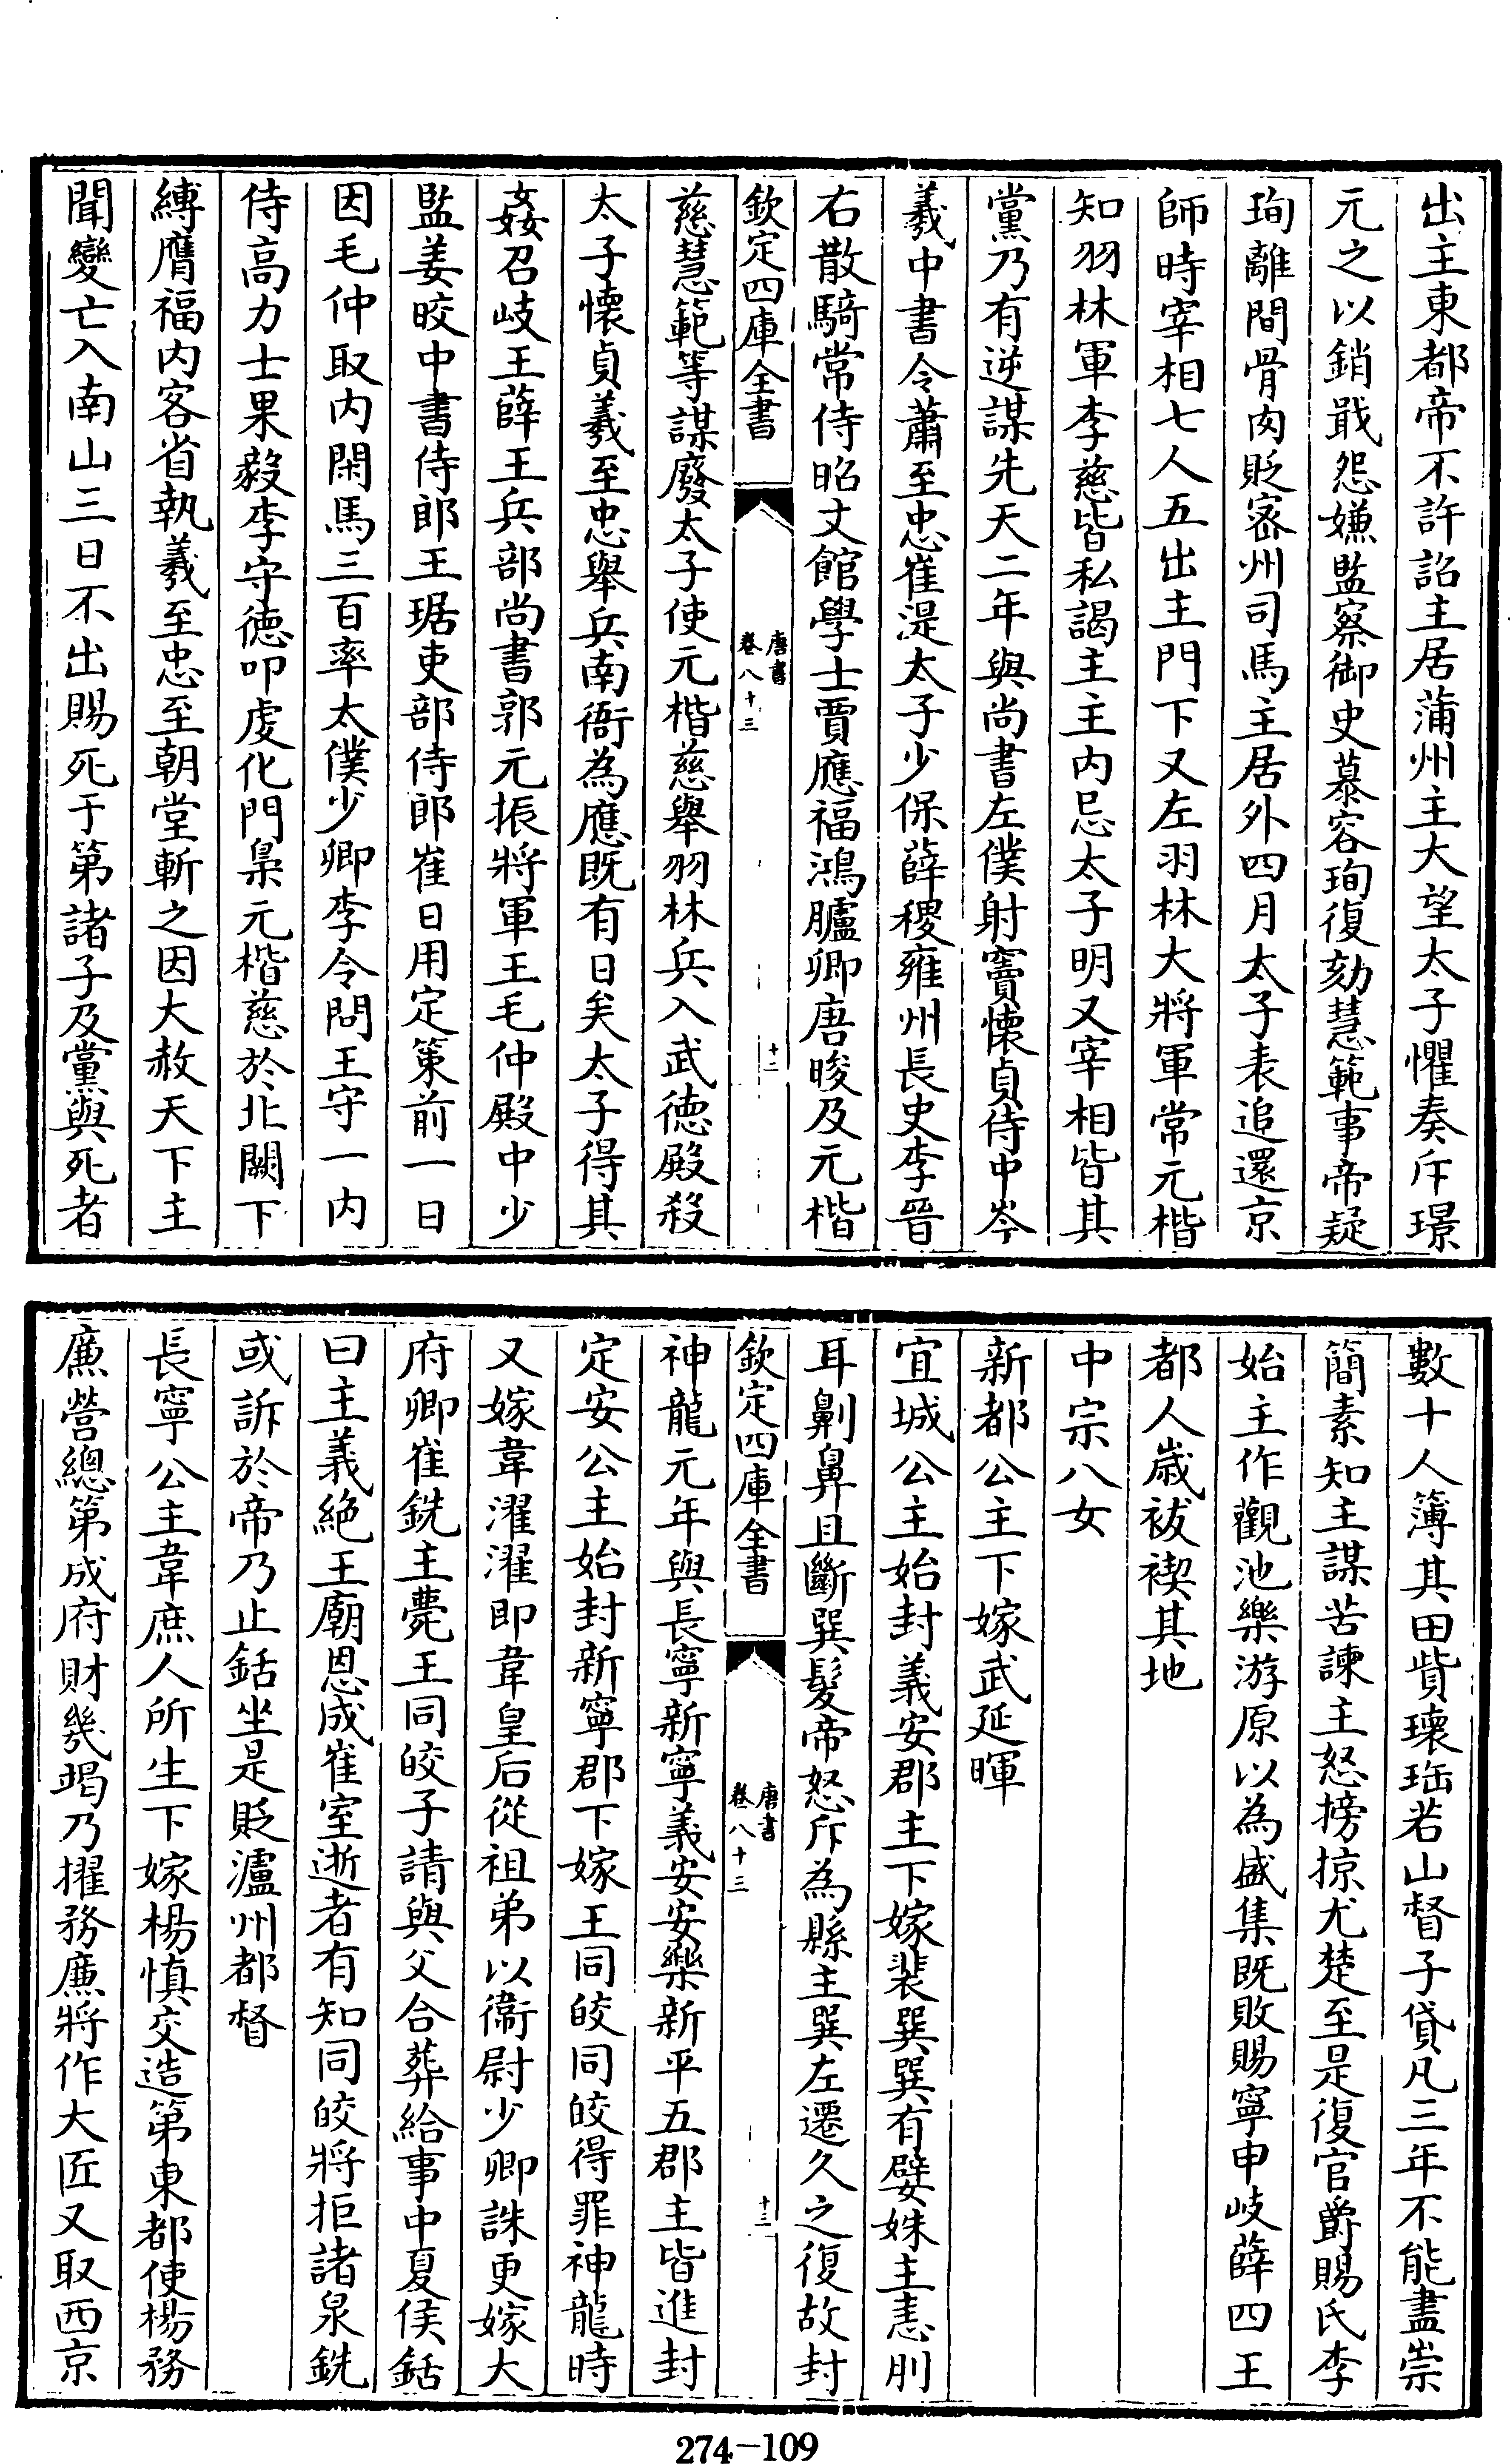 出主東都帝不許詔主居蒲州主大望太子懼奏斥璟
元之以銷戢怨嫌監察御史慕容珣復劾慧範事帝疑
珣離間骨肉貶密州司馬主居外四月太子表追還京
師時宰相七人五出主門下又左羽林大將軍常元楷
知羽林軍李慈皆私謁主主內忌太子明又宰相皆其
黨乃有逆謀先天二年與尚書左僕射竇懷貞侍中岑
羲中書令蕭至忠崔湜太子少保薛稷雍州長史李晉
右散騎常侍昭文館學士賈應福鴻臚卿唐晙及元楷
欽定四庫全書
唐書
卷八十三
十二
慈慧範等謀廢太子使元楷慈舉羽林兵入武德殿殺
太子懷貞羲至忠舉兵南衙為應既有日矣太子得其
姦召岐王薛王兵部尚書郭元振將軍王毛仲殿中少
監姜晈中書侍郎王琚吏部侍郎崔日用定策前一日
因毛仲取內閑馬三百率太僕少卿李令問王守一內
侍高力士果毅李守德叩虔化門梟元楷慈於北闕下
縛膺福內客省執羲至忠至朝堂斬之因大赦天下主
聞變亡入南山三日不出賜死于第諸子及黨與死者
數十人簿其田貲瓌珤若山督子貸凡三年不能盡崇
簡素知主謀苦諫主怒搒掠尤楚至是復官爵賜氏李
始主作觀池樂游原以為盛集既敗賜寧申岐薛四王
都人歲祓禊其地
中宗八女
新都公主下嫁武延暉
宜城公主始封義安郡主下嫁裴巽巽有嬖姝主恚刖
耳劓鼻且斷巽髮帝怒斥為縣主巽左遷久之復故封
欽定四庫全書
唐書
卷八十三
十三
神龍元年與長寧新寧義安安樂新平五郡主皆進封
定安公主始封新寧郡下嫁王同皎同皎得罪神龍時
又嫁韋濯濯即韋皇后從祖弟以衞尉少卿誅更嫁大
府卿崔銑主薨王同皎子請與父合葬給事中夏侯銛
曰主義絕王廟恩成崔室逝者有知同皎將拒諸泉銑
或訴於帝乃止銛坐是貶瀘州都督
長寧公主韋庶人所生下嫁楊慎交造第東都使楊務
廉營總第成府財幾竭乃擢務廉將作大匠又取西京
274-109